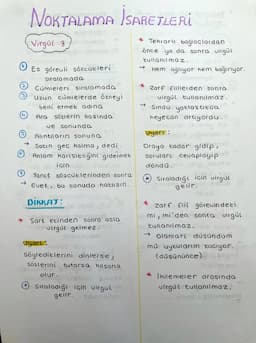 NOKTALAMA İŞARETLERİ
Virgül
① Eş görevli sözcükleri
sıralamada
② Cümleleri sıralamada
③ Uzun cümlelerde özneyi
belli etmek adına
④ Ara sözlerin başında
ve sonunda
⑤ Alıntıların sonuna
→ Satın geç kalma, dedi
⑥ Anlam karışıklığını gidermek
için
⑦ Yanıt sözcüklerinden sonra
→ Evet, bu konuda haklısın.
DİKKAT:
* Şart ekinden sonra asla
virgül gelmez.
Uyarı:
Söylediklerini dinlerse,
sözlerini tutarsa başarılı
olur.
Sıraladığı için virgül
gelir.
* Tekrarlı bağlaçlardan
önce ya da sonra virgül
kullanılmaz.
→ Hem ağlıyor hem bağırıyor.
* Zarf fiillerden sonra
virgül kullanılmaz.
→ Sınav yaklaştıkça
heyecan artıyordu.
Uyarı:
Oraya kadar gidip,
soruları cevaplayıp
döndü.
Sıraladığı için virgül
gelir.
* Zarf fiil görevindeki
mı, mi'den sonra virgül
kullanılmaz.
→ Olanları düşündüm
mü uykularım kaçıyor.
(düşününce)
* İkilemeler arasında
virgül kullanılmaz.